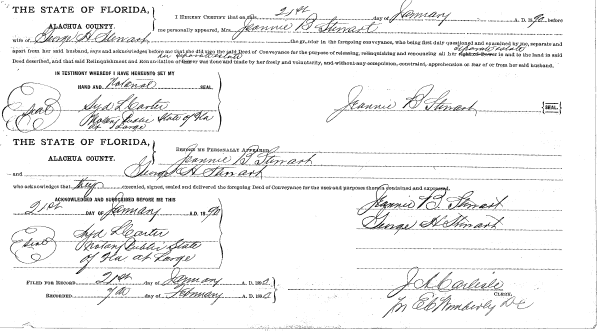 THE STATE OF FLORIDA,
ALACHUA COUNTY.
I HEREBY CERTIFY that on this 21st day of January A. D. 90, before
me personally appeared, Mrs. Jeannie B Stewart
wife of George H Stewart the grantor in the foregoing conveyance, who being first duly questioned and examined by me, separate and
apart from her said husband, says and acknowledges that she did sign the said Deed of Conveyance for the purpose of renouncing, relinquishing and renouncing all her right of Dower in and to the land in
separate estate
said Deed described, and that said Relinquishment and Renunciation of Dower was done and made by her freely and voluntarily, and without any compulsion, constraint, apprehension or fear of or from her said husband.
IN TESTIMONY WHEREOF I HAVE HEREUNTO SET MY
HAND AND Notarial SEAL
Seal
Syd L Carter
Notary Public State of Fla
at Large
Jeannie B Stewart {SEAL}
THE STATE OF FLORIDA,
ALACHUA COUNTY.
BEFORE ME PERSONALLY APPEARED
Jeannie B Stewart
and George H Stewart
who acknowledges that they executed, signed, sealed and delivered the foregoing Deed of Conveyance for the uses and purposes therein contained and expressed.
ACKNOWLEDGED AND SUBSCRIBED BEFORE ME THIS
21st DAY OF January A.D. 1890
Jeannie B. Stewart
George H Stewart
Seal
Syd L Carter
Notary Public State
of Fla at Large
FILED FOR RECORD 21st day of January A. D. 1890
RECORDED 7th day of February A. D. 1890
J A Carlisle
CLERK.
Per E C Wimberly DC